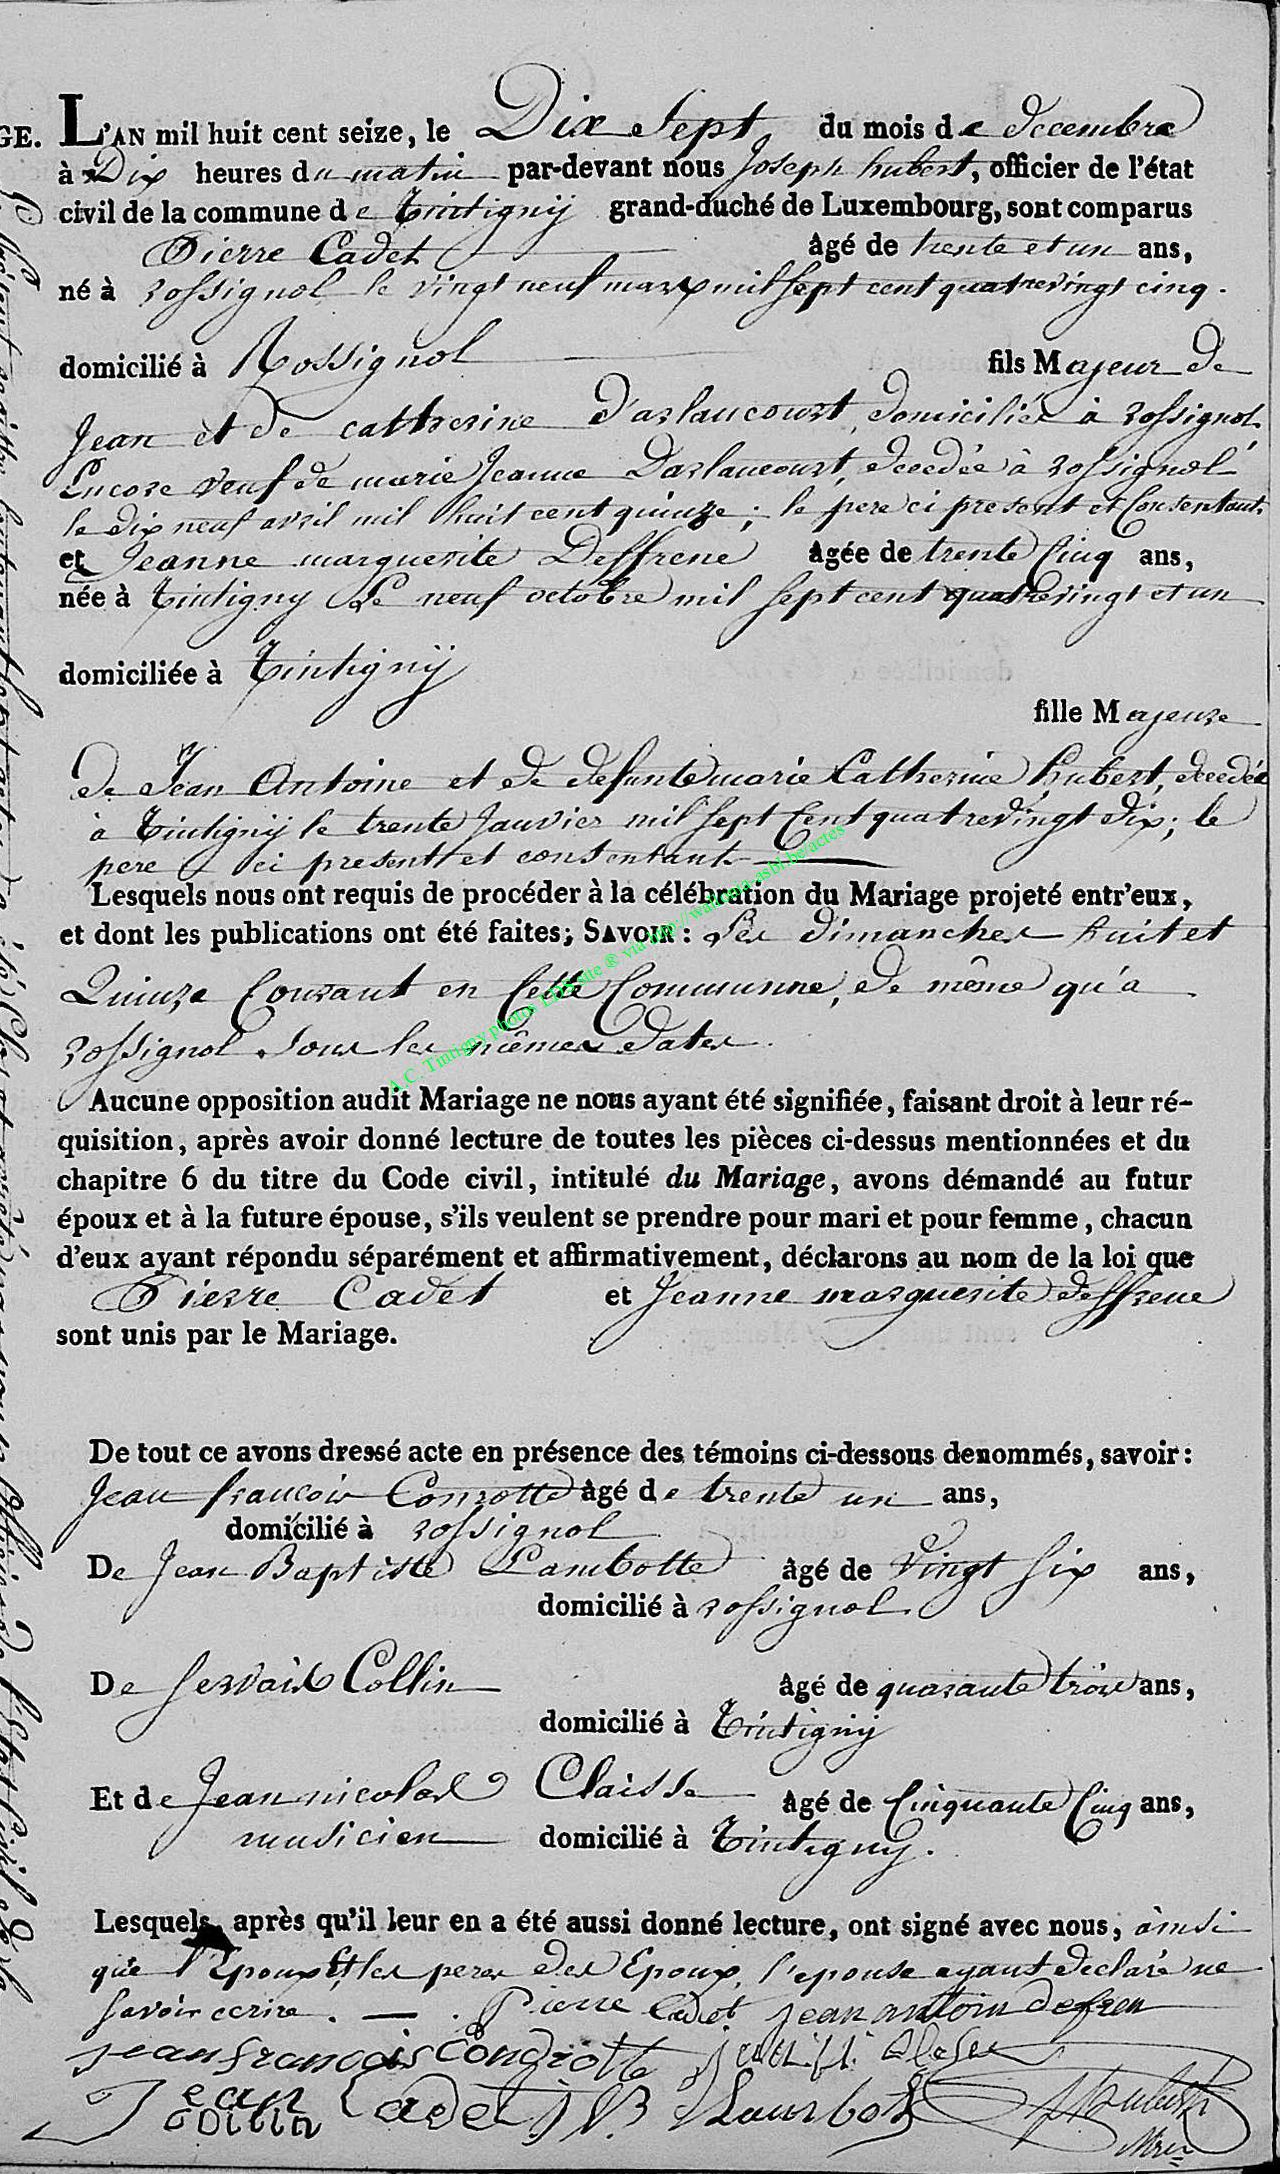 GE.
L'AN mil huit cent seize, le Dix Sept du mois de decembre
à Dix heures du matin par-devant nous Joseph hubert, officier de l'état
civil de la commune de Tintignÿ grand-duché de Luxembourg, sont comparus
Pierre Cadet âgé de trente et un ans,
né à rossignol le vingt neuf mars mil sept cent quatrevingt cinq.
domicilié à Rossignol fils Majeur de
Jean et de catherine D'arlancourt, domiciliés à rossignol.
Encore veuf de marie Jeanne Darlancourt, decedée à rossignol
le dix neuf avril mil huit cent quinze; le pere ci present et Consentant.
et Jeanne marguerite Deffrene âgée de trente Cinq ans,
née à Tintigny Le neuf octobre mil sept cent quatrevingt et un
domiciliée à Tintignÿ
fille Majeure
de Jean Antoine et de defunte marie Catherine hubert, decedée
à Tintignÿ le trente Janvier mil sept Cent quatrevingt dix; le
pere ci present et consentant
Lesquels nous ont requis de procéder à la célébration du Mariage projeté entr'eux,
et dont les publications ont été faites; SAVOIR: Les dimanches huit et
Quinze Courant en Cette Communne, de même qu'a
rossignol sous les mêmes dates.
A.C. Tintigny photos LDS site ® via http://wallonia-asbl.be/actes
Aucune opposition audit Mariage ne nous ayant été signifiée, faisant droit à leur ré-
quisition, après avoir donné lecture de toutes les pièces ci-dessus mentionnées et du
chapitre 6 du titre du Code civil, intitulé du Mariage, avons démandé au futur
époux et à la future épouse, s'ils veulent se prendre pour mari et pour femme, chacun
d'eux ayant répondu séparément et affirmativement, déclarons au nom de la loi que
Pierre Cadet et Jeanne marguerite deffrene
sont unis par le Mariage.
De tout ce avons dressé acte en présence des témoins ci-dessous denommés, savoir:
Jean françois Conrotte âgé de trente un ans,
domicilié à rossignol
De Jean Baptiste Lambotte âgé de vingt six ans,
domicilié à rossignol
De Servais Collin âgé de quarante trois ans,
domicilié à Tintignÿ
Et de Jean nicolas Claisse âgé de Cinquante Cinq ans,
musicien domicilié à Tintigny.
Lesquels, après qu'il leur en a été aussi donné lecture, ont signé avec nous, àinsi
que l'Epoux et les peres des Epoux, l'epouse ayant declaré ne
savoir ecrire. Pierre Cadet jean antoin defren
jean francois Condrotte
Jean Cadet J B Lambot
collin